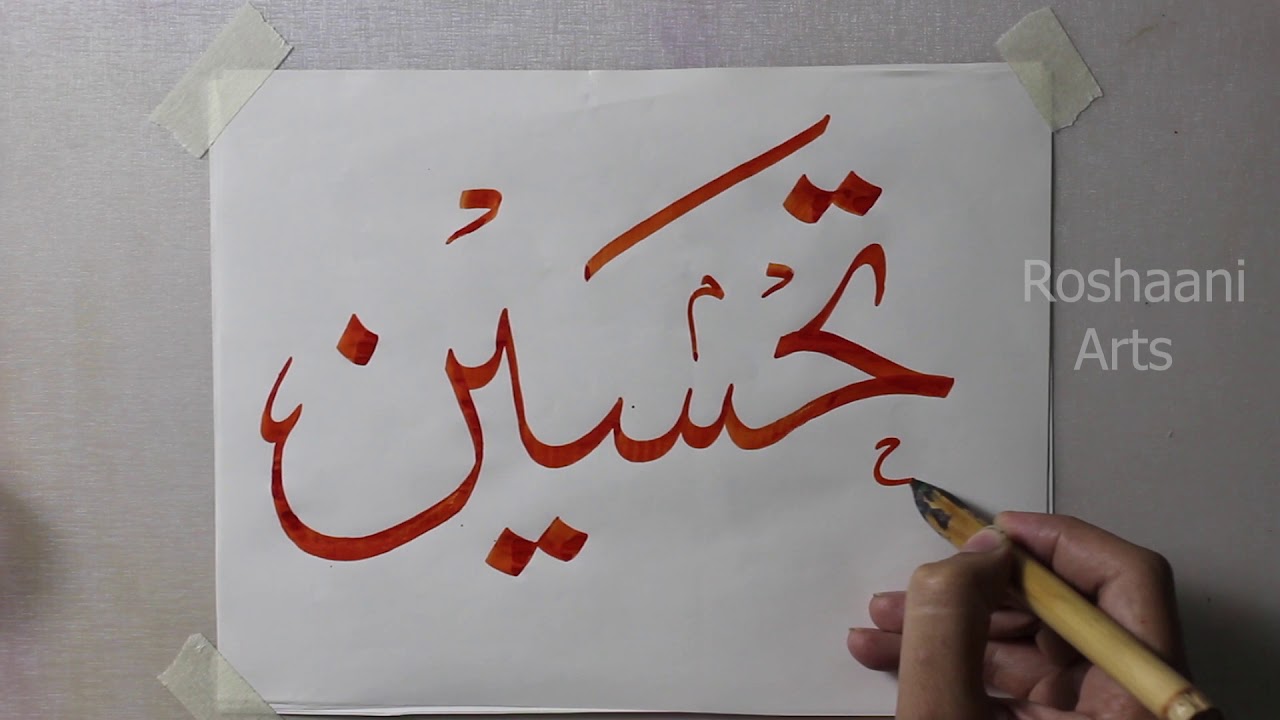 تحسین
ح
Roshaani
Arts